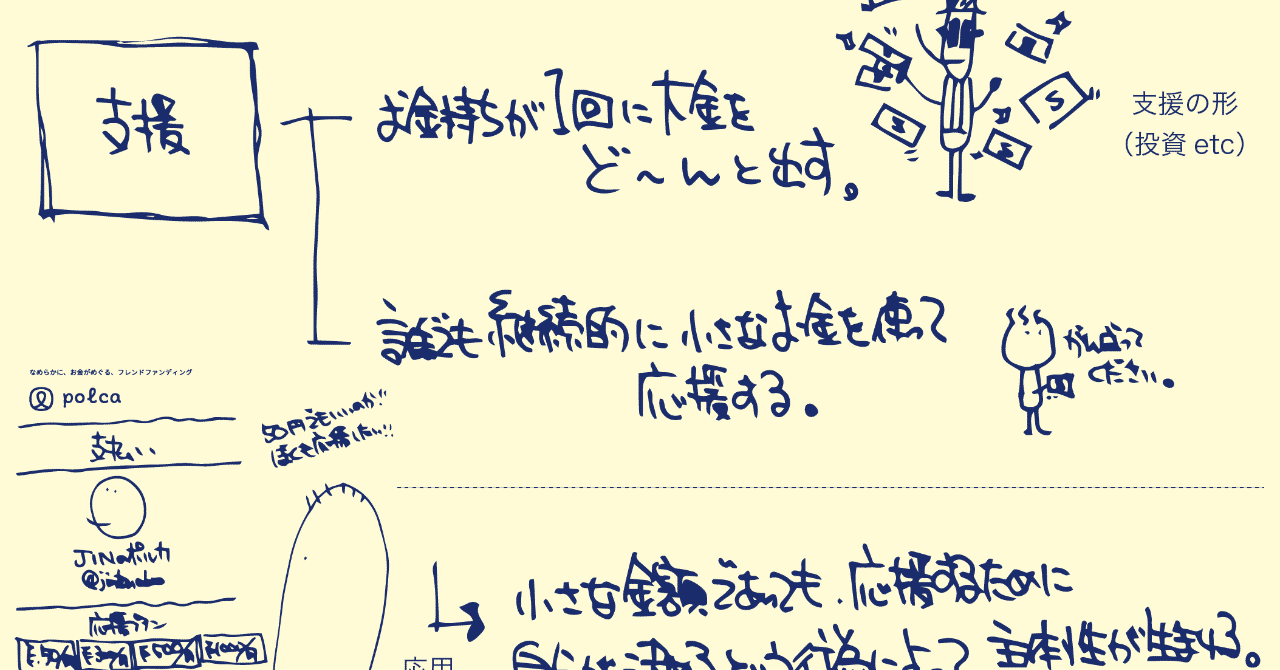 支援
お金持ちが1回に大金を
ど〜んと出す。
支援の形
（投資 etc）
誰でも継続的に小さなお金を使って
応援する。
がん占って
ください。
なめらかに、お金がめぐる、フレンドファンディング
polca
50円でもいいのか!!
ぼくも応援したい!!
支払い
JINのポルカ
応援プラン
小さな金額であっても、応援するために
自らが決めるという行為によって主体性が生まれる。
応用